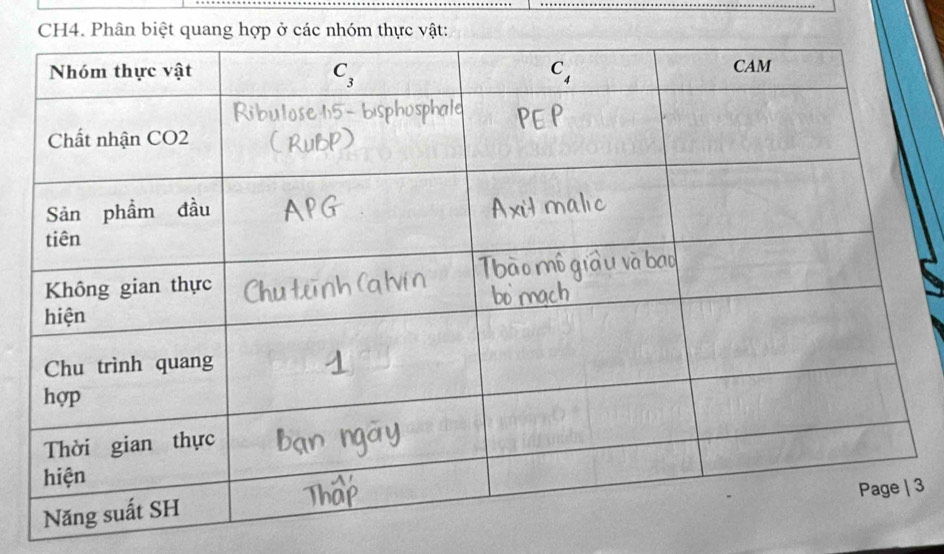 CH4. Phân biệt quang hợp ở các nhóm thực vật:
Nhóm thực vật C3 C4 CAM
Chất nhận CO2 Ribulose 1,5 - bisphosphale (RuBP) PEP
Sản phẩm đầu tiên APG Axit malic
Không gian thực hiện Chu trình Calvin Tbào mô giậu và bao bó mạch
Chu trình quang hợp 1
Thời gian thực hiện Ban ngày
Năng suất SH Thấp
Page | 3